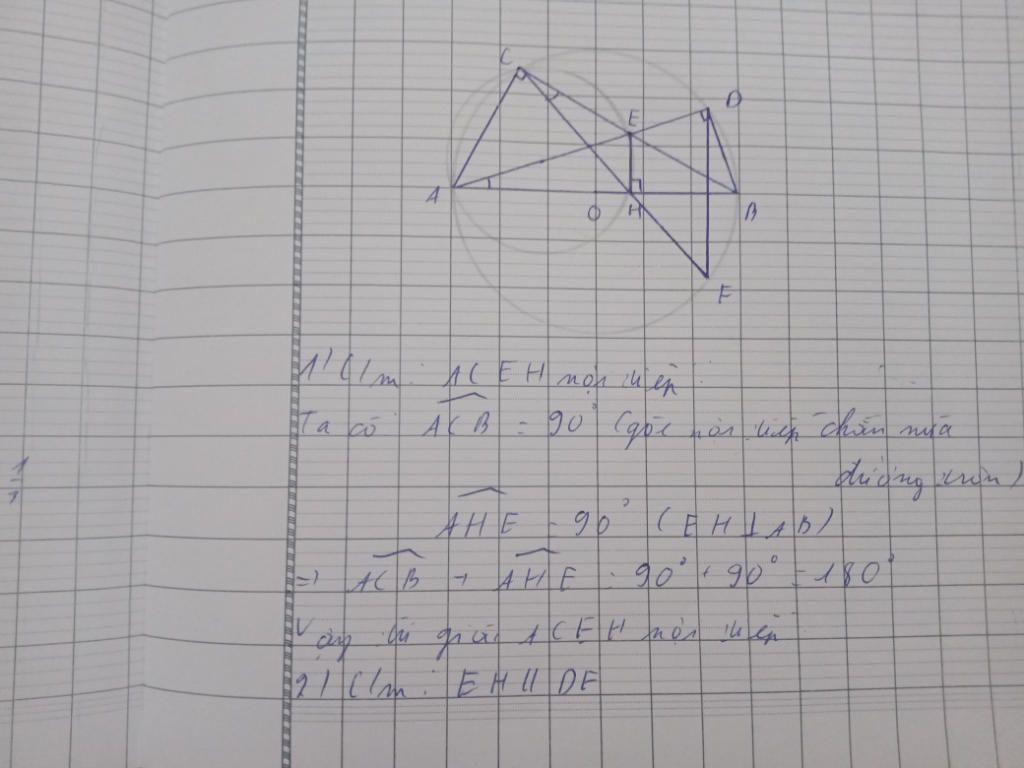 C
D
E
A
O
H
B
F
1) C/m: ACEH nội tiếp.
Ta có ACB = 90° (góc nội tiếp chắn nửa
đường tròn)
AHE = 90° (EH ⊥ AB)
=> ACB + AHE = 90° + 90° = 180°
Vậy tứ giác ACEH nội tiếp
2) C/m: EH // DF